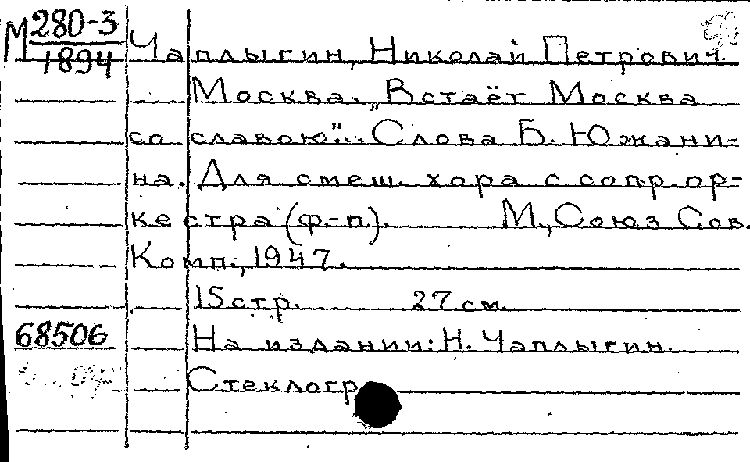 М 280-3
1894
Чаплыгин, Николай Петрович
Москва. „Встаёт Москва
со славою"... Слова Б. Южани-
на. Для смеш. хора с сопр. ор-
кестра (ф.-п.). М., Союз Сов.
Комп., 1947.
15 стр. 27 см.
68506
На издании: Н. Чаплыгин.
Стеклогр.